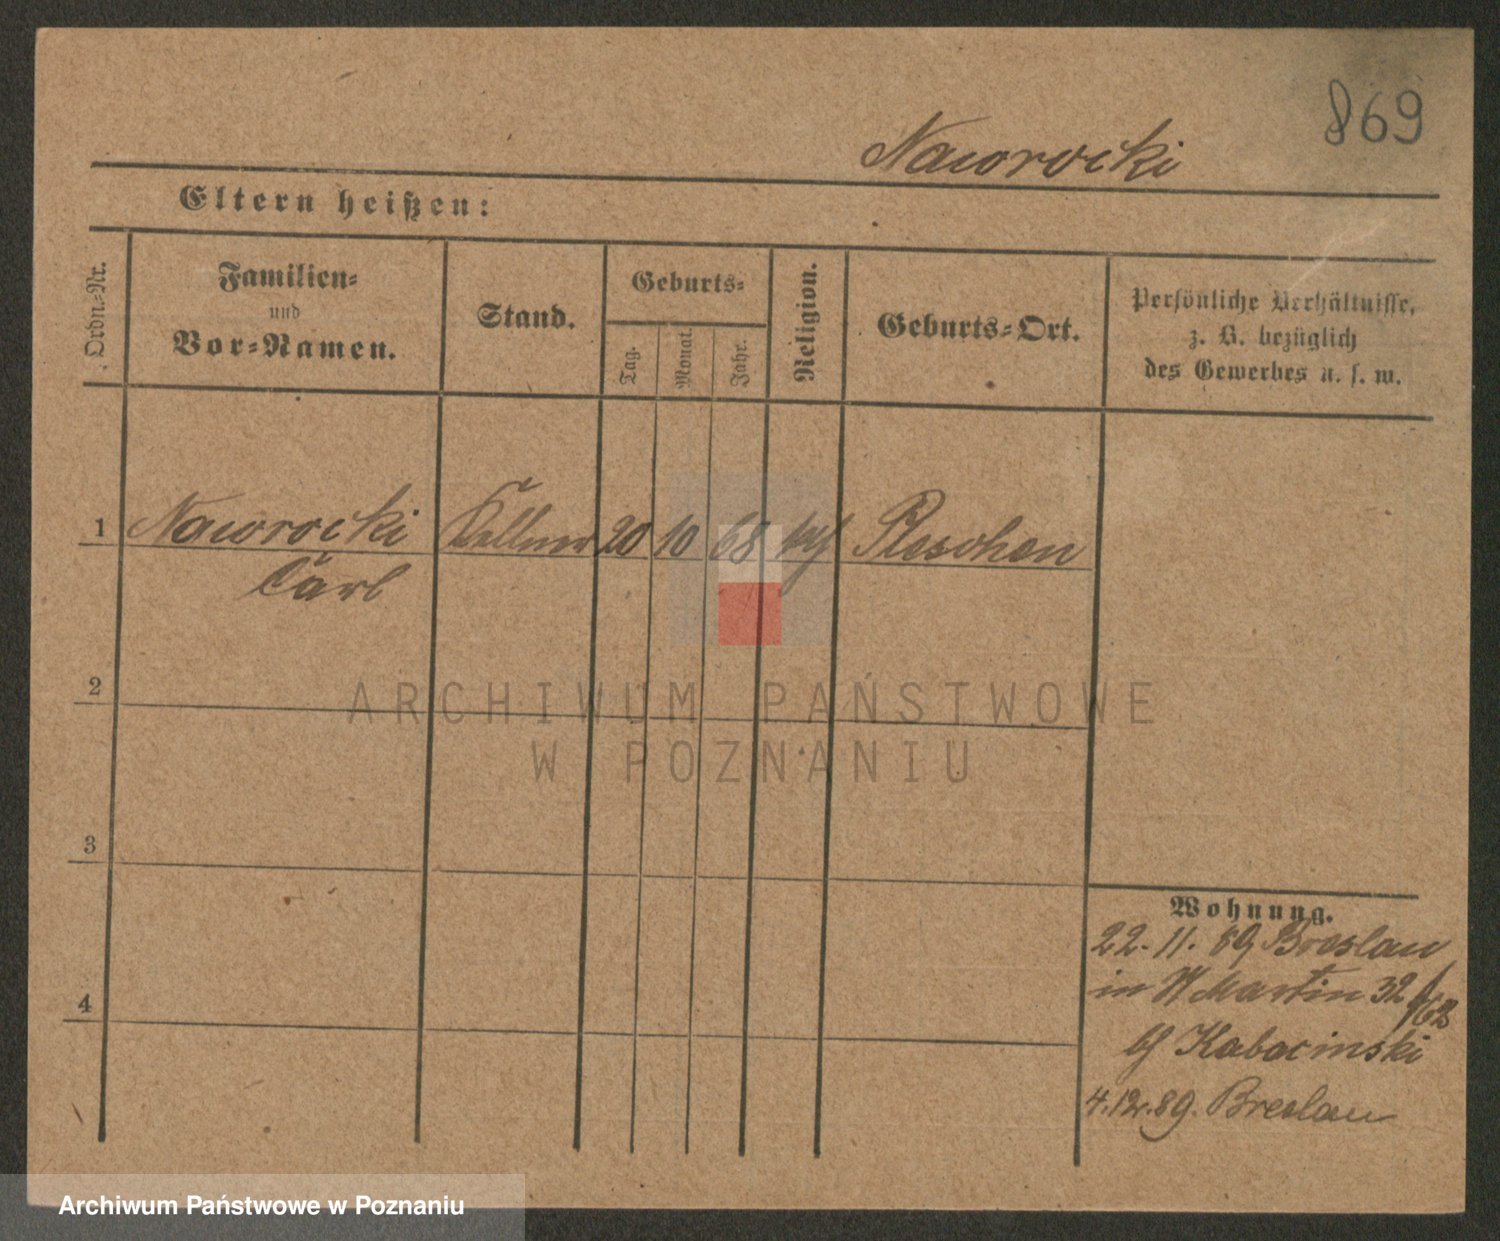 869
Naworocki
Eltern heißen:
Ordn.=Nr.
Familien=
und
Vor=Namen.
Stand.
Geburts=
Tag.
Monat.
Jahr.
Religion.
Geburts=Ort.
Persönliche Verhältnisse,
z. B. bezüglich
des Gewerbes u. s. w.
1
Naworocki
Carl
Kellner
20
10
68
Pleschen
2
3
4
Wohnung.
22. 11. 89 Breslau
in St Martin 32
Kabacinski
4. 12. 89. Breslau
ARCHIWUM PAŃSTWOWE
W POZNANIU
Archiwum Państwowe w Poznaniu